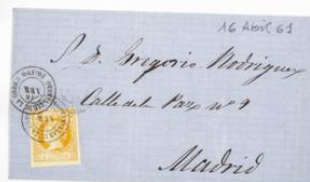 16 Abril 61
S. D. Gregorio Rodriguez
Calle de la Paz nº 9
Madrid